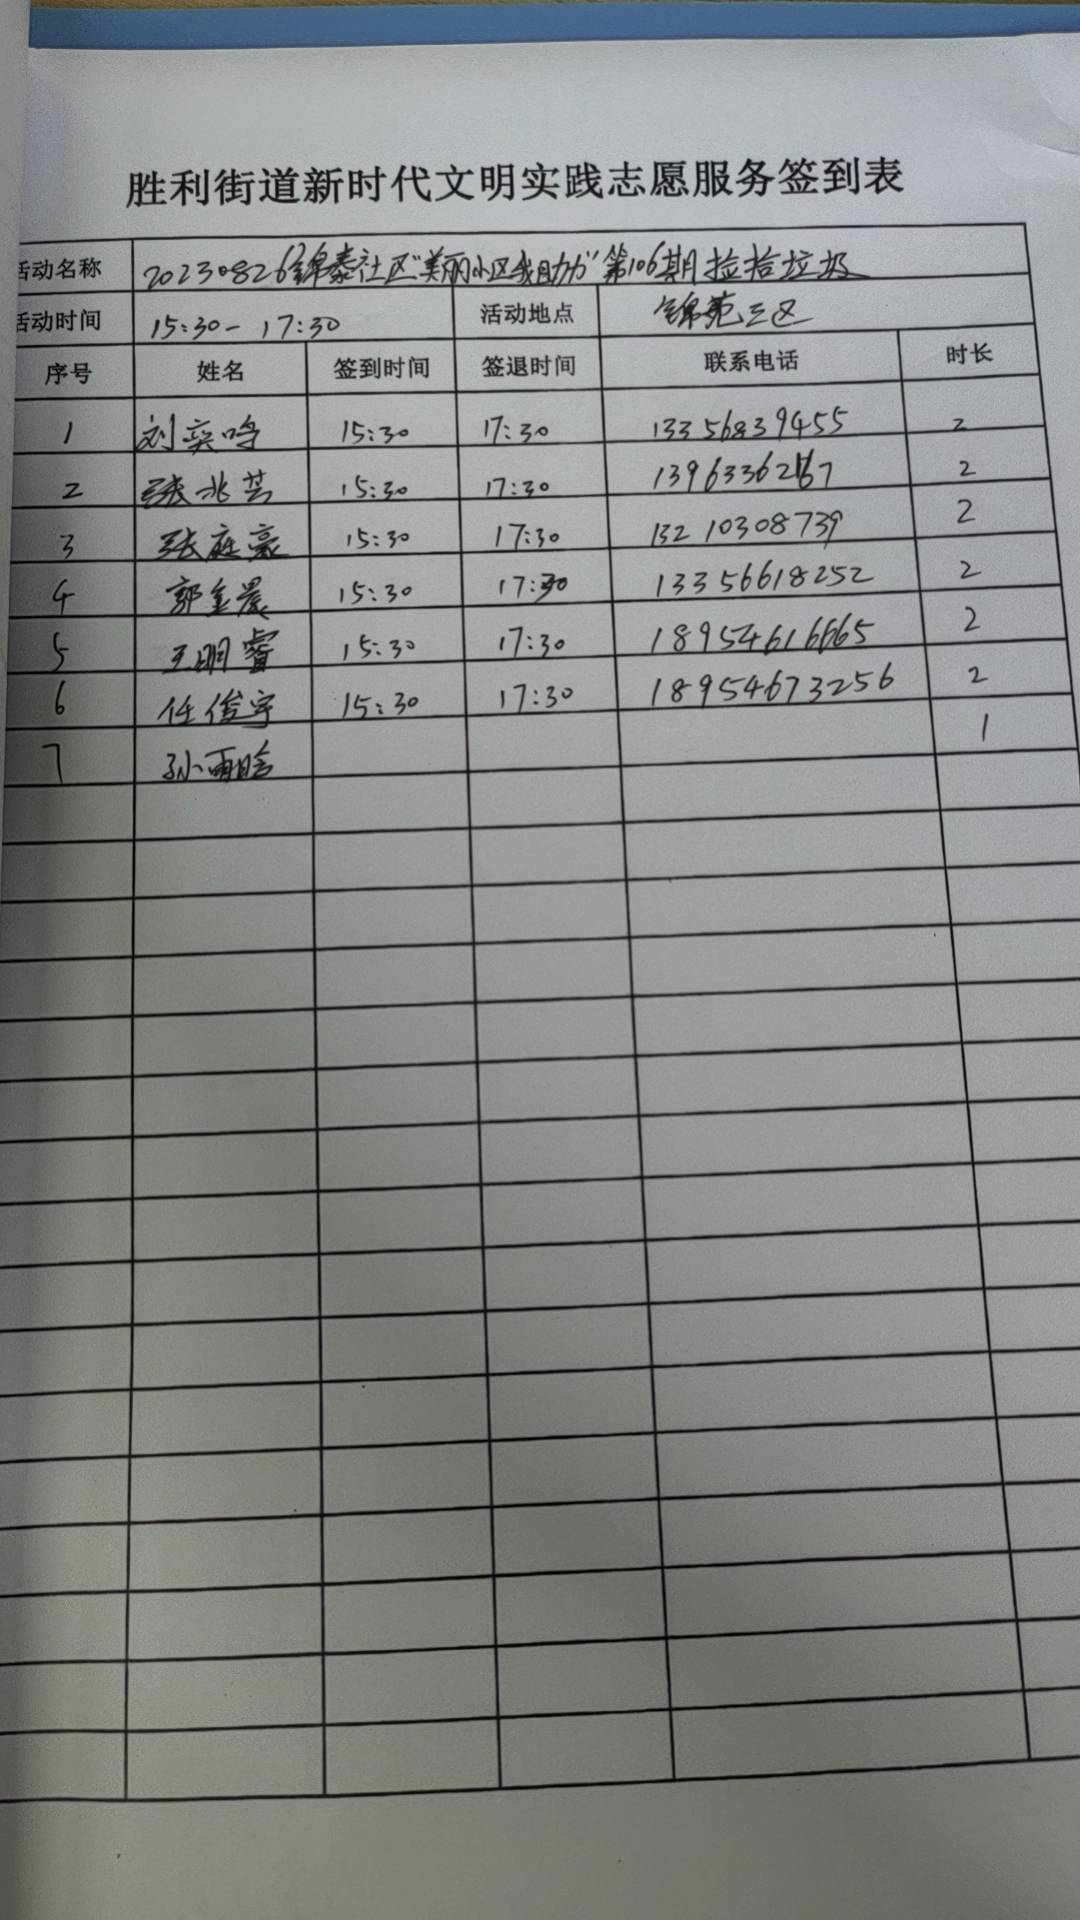 胜利街道新时代文明实践志愿服务签到表
活动名称 20230826锦泰社区"美丽小区我助力"第106期捡拾垃圾
活动时间 15:30-17:30 活动地点 锦苑三区
序号 姓名 签到时间 签退时间 联系电话 时长
1 刘奕鸣 15:30 17:30 13356839455 2
2 张兆芸 15:30 17:30 2
3 张庭豪 15:30 17:30 13210308739 2
4 郭金晨 15:30 17:30 13356618252 2
5 王明睿 15:30 17:30 18954616665 2
6 任俊宇 15:30 17:30 18954673256 2
7 孙雨晗 1